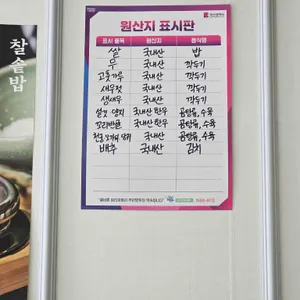 찰솥밥
원산지 표시판
표시 품목 원산지 음식명
쌀 국내산 밥
무 국내산 깍두기
고춧가루 국내산 깍두기
새우젓 국내산 깍두기
생새우 국내산 깍두기
국내산 한우 곰탕류, 수육
국내산 한우 곰탕류, 수육
국내산 한우 곰탕류, 수육
배추 국내산 김치